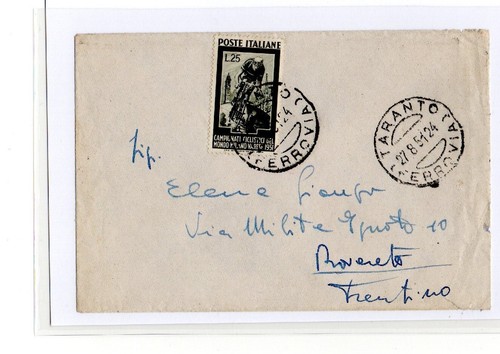 POSTE ITALIANE
L.25
CAMPIONATI CICLISTICI DEL
MONDO MILANO VARESE 1951
TARANTO
FERROVIA
TARANTO
27.8.51.24
FERROVIA
Sig.
Elena
Via Milite Ignoto 10
Rovereto
Trentino